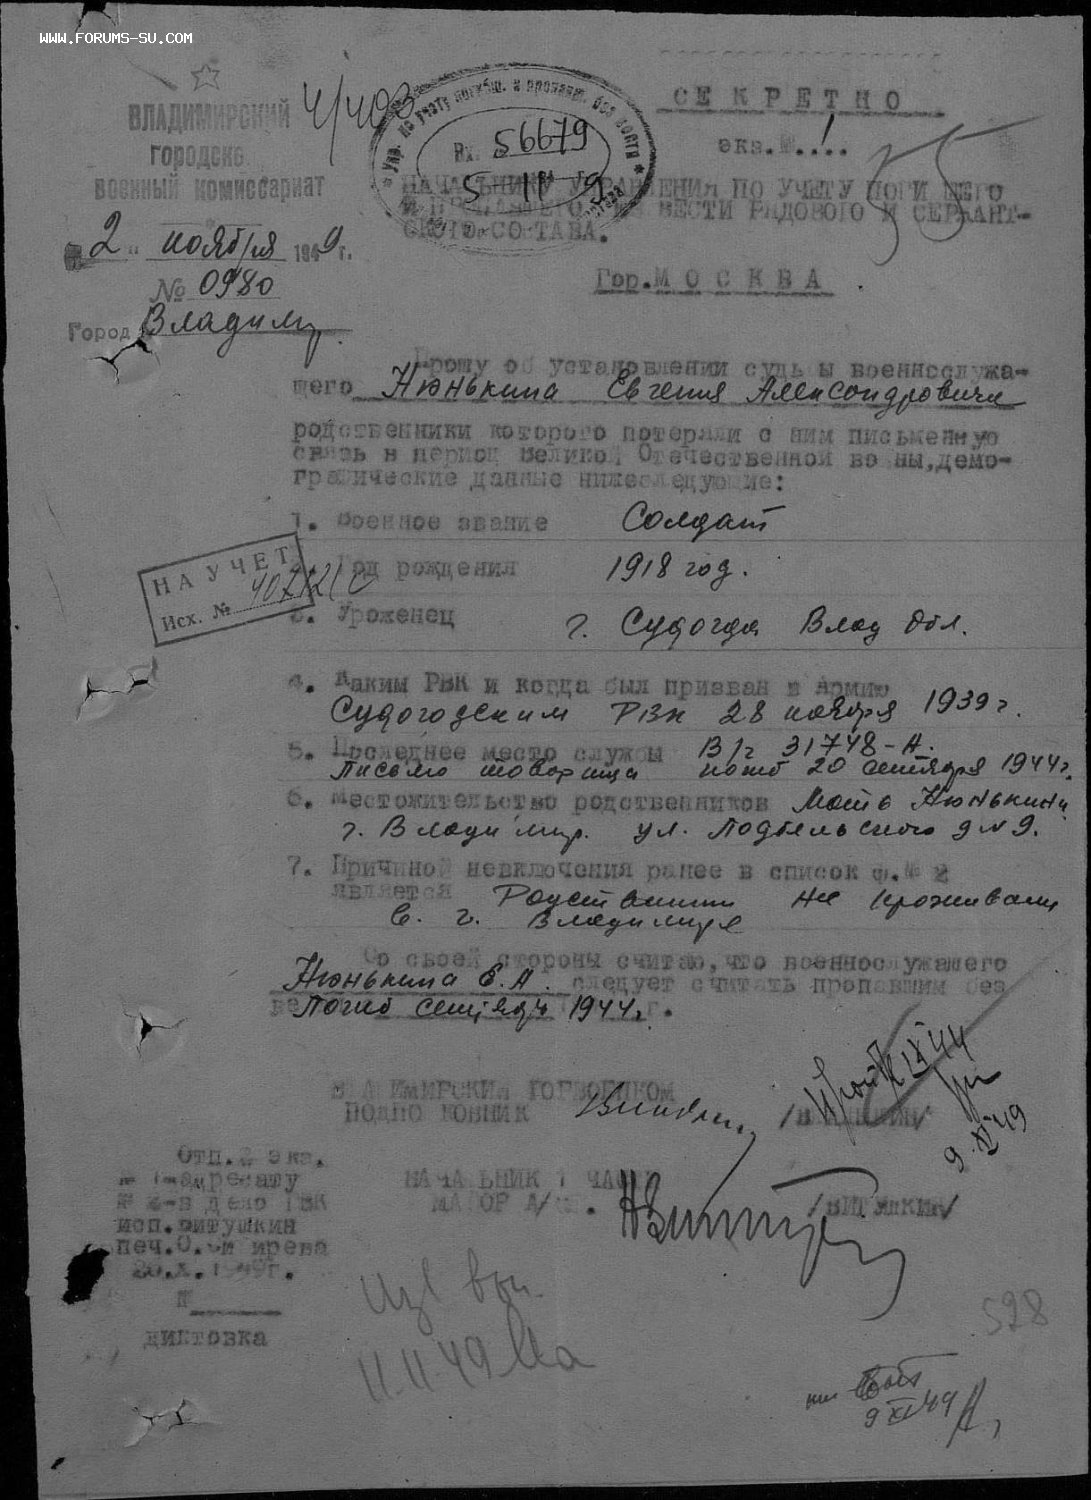 WWW.FORUMS-SU.COM
4/403
ВЛАДИМИРСКИЙ
ГОРОДСКО
ВОЕННЫЙ КОМИССАРИАТ
"2" ноября 1949 г.
№ 0980
Город Владимир.
Упр. по учету погибш. и пропавш. без вести
Вх. 56679
5 11 9
СЕКРЕТНО
экз.№ 1.
НАЧАЛЬНИКУ УПРАВЛЕНИЯ ПО УЧЕТУ ПОГИБШЕГО
И ПРОПАВШЕГО БЕЗ ВЕСТИ РЯДОВОГО И СЕРЖАНТ-
СКОГО СОСТАВА.
Гор.МОСКВА
Прошу об установлении судьбы военнослужа-
щего Нюнькина Евгения Александровича
родственники которого потеряли с ним письменную
связь в период Великой Отечественной войны,демо-
графические данные нижеследующие:
1. Военное звание Солдат
НА УЧЕТ
Исх. №
Год рождения 1918 год.
3. Уроженец г. Судогда Влад Обл.
4. Каким РВК и когда был призван в Армию
Судогодским РВК 28 ноября 1939 г.
5. Последнее место службы В/ч 31748-А.
письмо товарища погиб 20 сентября 1944 г.
6. Местожительство родственников Мать Нюнькина
г. Владимир. ул. Подбельского д № 9.
7. Причиной невключения ранее в список ф.№ 2
является Родственники не проживали
в. г. Владимире
Со своей стороны считаю,что военнослужащего
Нюнькина Е.А. следует считать пропавшим без
ве Погиб сентябрь 1944 г.
ВЛАДИМИРСКИЙ ГОРВОЕНКОМ
ПОДПОЛКОВНИК
IX 44
9.XI 49
НАЧАЛЬНИК 1 ЧАСТИ
МАЙОР А/СЛ. /ВИТУШКИН/
Отп.2 экз.
№ 1-адресату
№ 2-в дело ГВК
исп.Витушкин
печ.
20.X.1949г.
№
диктовка
11.11.49
528
9 XI 49